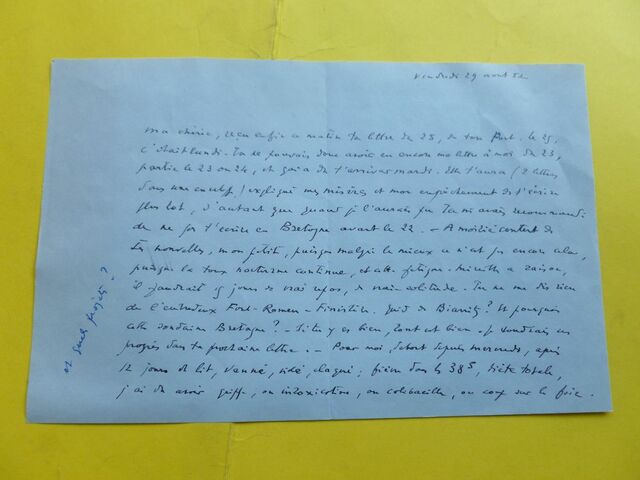 Vendredi 29 août 52
ma chérie, reçu enfin ce matin ta lettre du 25, de ton Port. le 25,
c'était lundi. Tu ne pouvais donc avoir eu encore ma lettre à moi du 23,
partie le 23 ou 24, et qui a dû t'arriver mardi. Elle t'aura (2 lettres
dans une enveloppe) expliqué mes misères et mon empêchement de t'écrire
plus tôt, d'autant que quand je l'aurais pu tu m'avais recommandé
de ne pas t'écrire en Bretagne avant le 22. - A moitié content de
tes nouvelles, mon petit, puisque malgré le mieux ce n'est pas encore cela,
puisque la toux nocturne continue, et cette fatigue. a raison,
il faudrait 15 jours de vrai repos, de vraie solitude. Tu ne me dis rien
de l'entredeux Font-Romeu - Finistère. Quid de Biarritz ? Et pourquoi
cette soudaine Bretagne ? - Si tu y es bien, tout est bien. Je voudrais un
progrès dans ta prochaine lettre. - Pour moi, debout depuis mercredi, après
12 jours de lit, vanné, vidé, claqué ; fièvre dans le 38°5, diète totale,
j'ai dû avoir grippe, ou intoxication, ou colibacille, ou coup sur le foie.
et quels projets ?